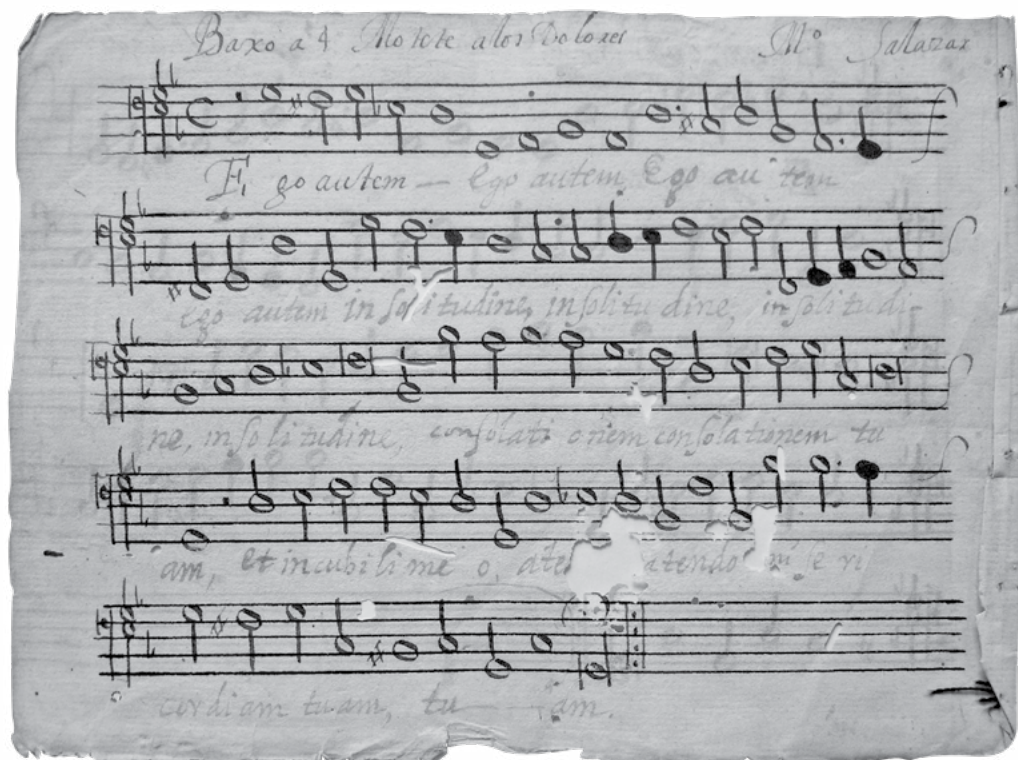 Baxo a 4 Motete a los Dolores Mº Salazar
Ego autem — Ego autem Ego autem
Ego autem in solitudine, in solitudine, in solitudi-
ne, in solitudine, consolationem consolationem tu
am, et in cubili meo, atendo mi se ri
cordiam tuam, tu am.